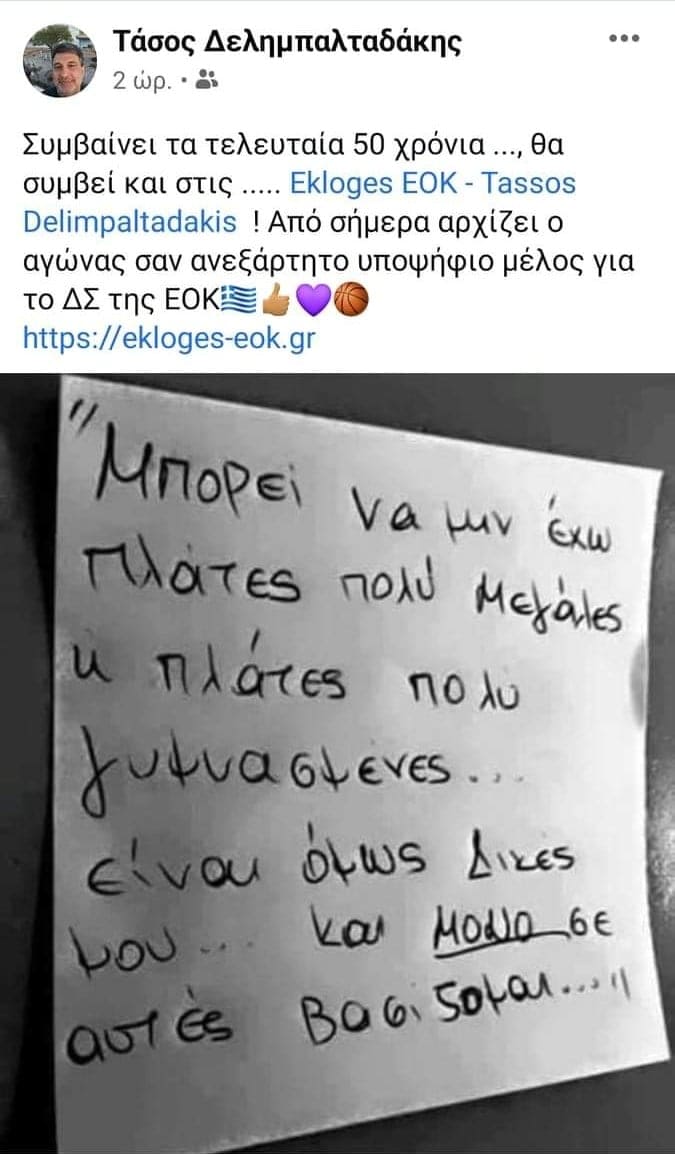 Τάσος Δελημπαλταδάκης
2 ώρ.
Συμβαίνει τα τελευταία 50 χρόνια ..., θα
συμβεί και στις ..... Ekloges EOK - Tassos
Delimpaltadakis ! Από σήμερα αρχίζει ο
αγώνας σαν ανεξάρτητο υποψήφιο μέλος για
το ΔΣ της ΕΟΚ🇬🇷👍🏽💜🏀
https://ekloges-eok.gr
"Μπορεί να μην έχω
πλάτες πολύ μεγάλες
κ πλάτες πολύ
γυμνασμένες...
είναι όμως δικές
μου... και μόνο σε
αυτές βασίζομαι..."